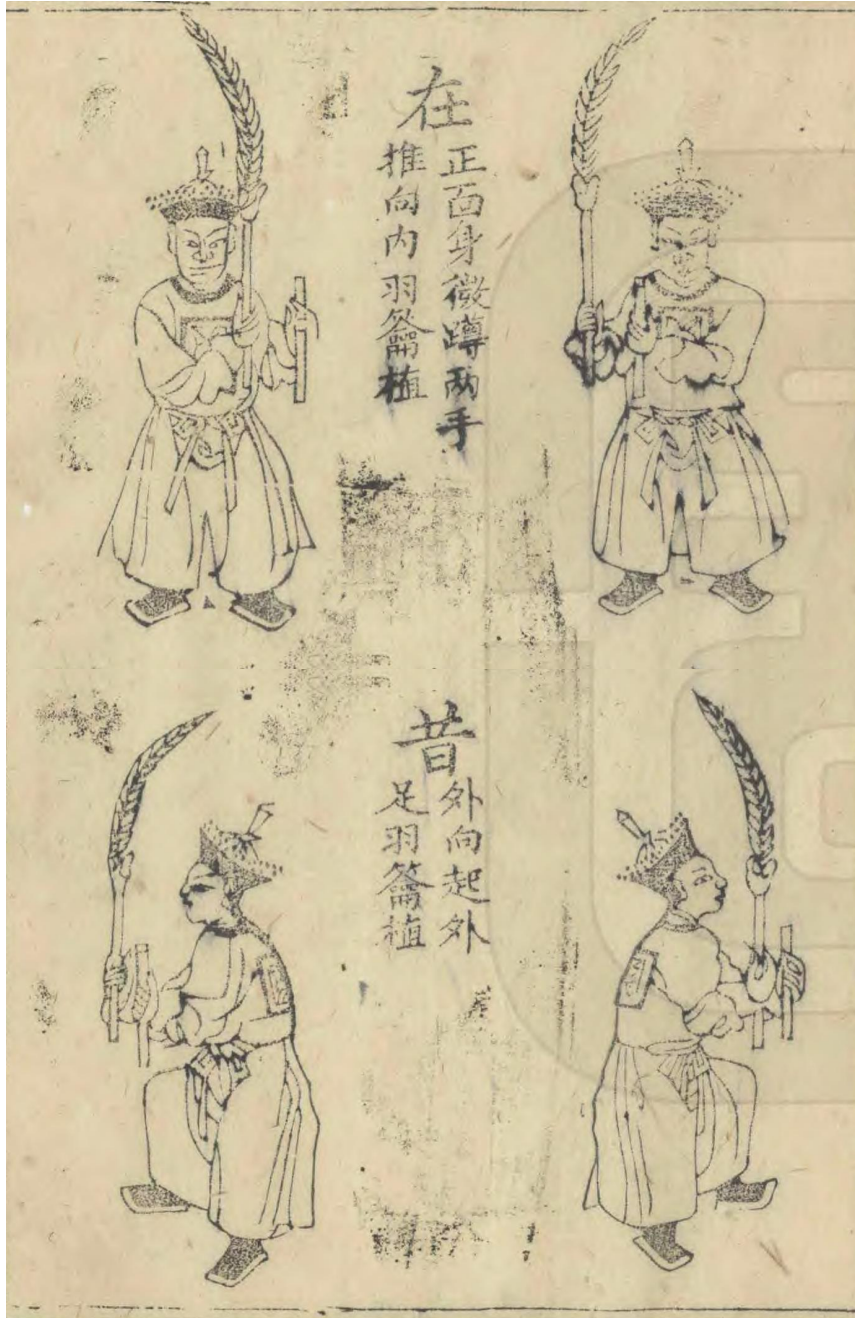 在
正面身微蹲两手
推向内羽籥植
昔
外向起外
足羽籥植